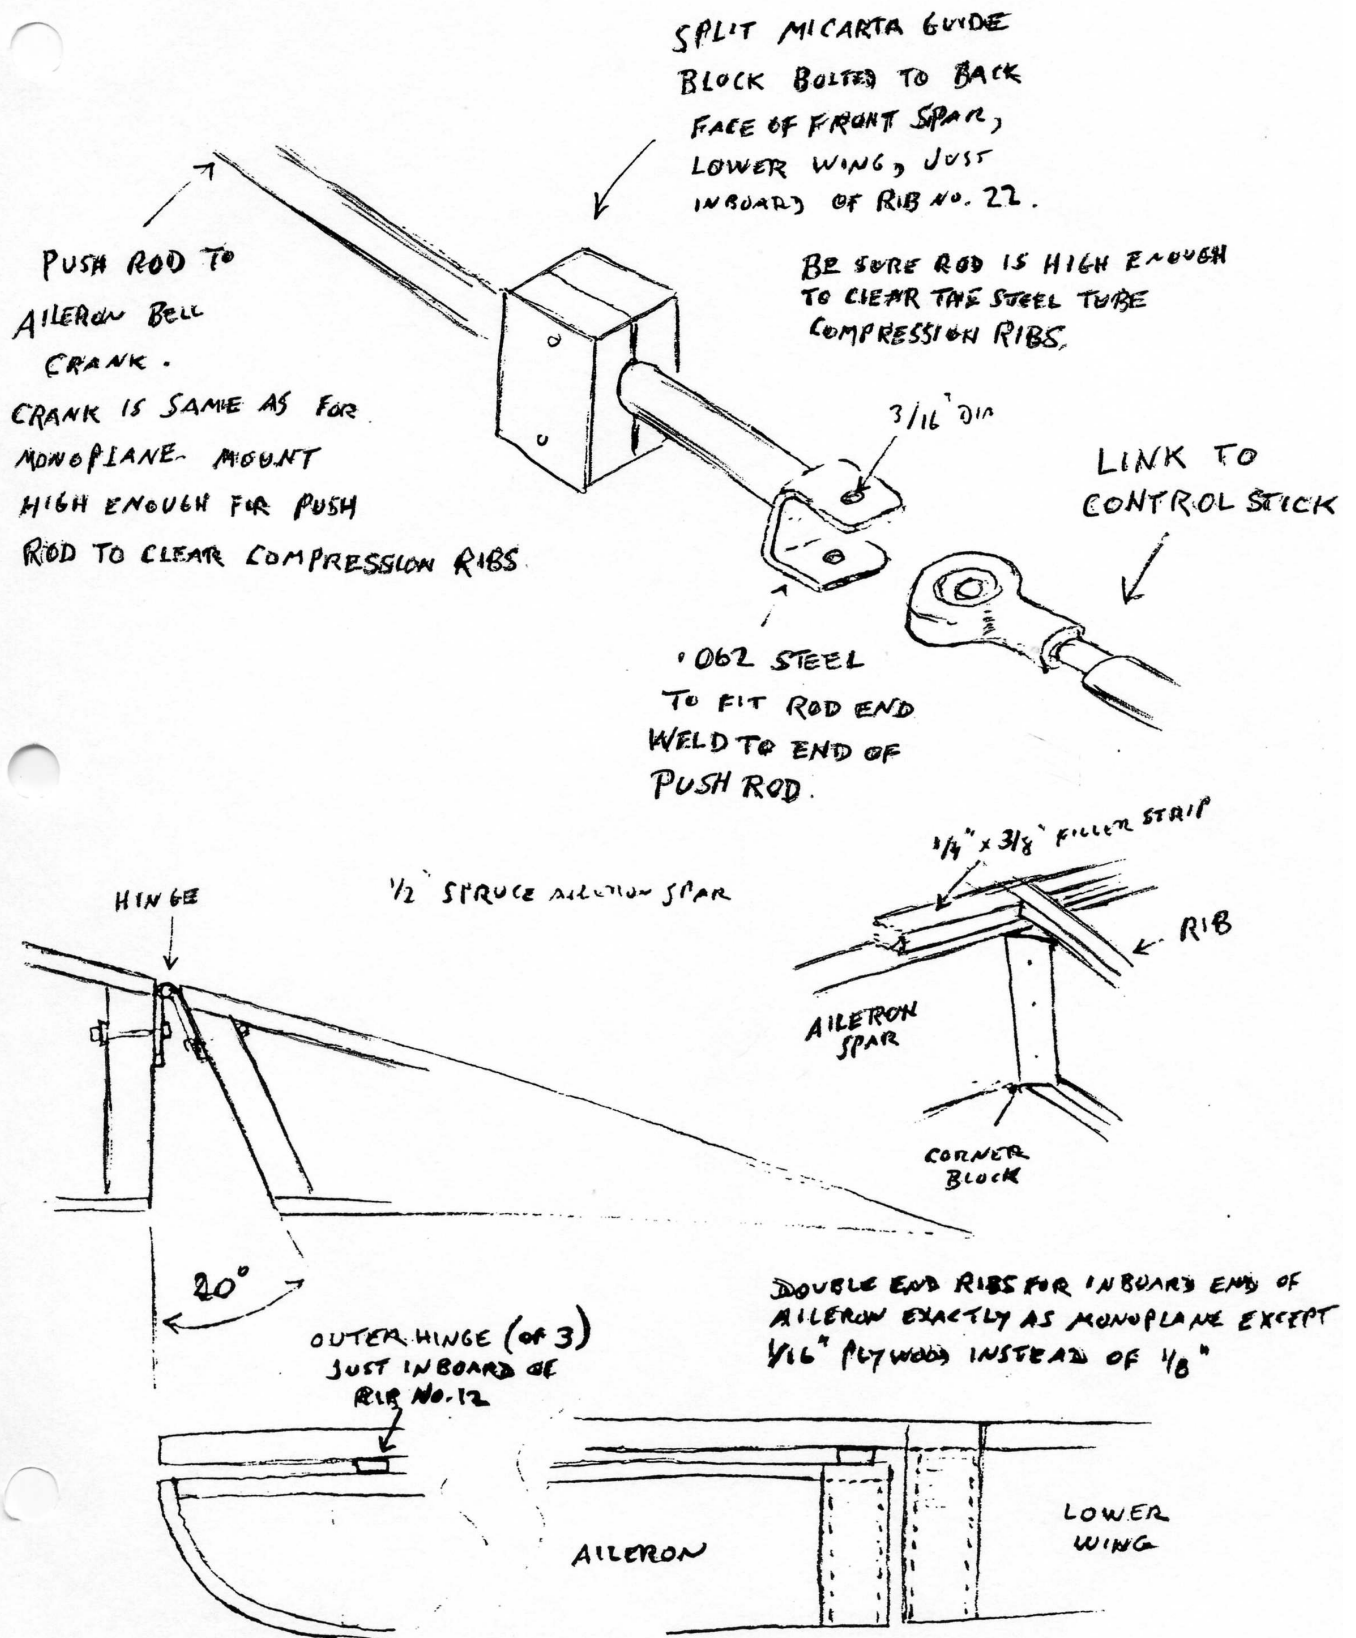 SPLIT MICARTA GUIDE
BLOCK BOLTED TO BACK
FACE OF FRONT SPAR,
LOWER WING, JUST
INBOARD OF RIB NO. 22.
PUSH ROD TO
AILERON BELL
CRANK.
CRANK IS SAME AS FOR
MONOPLANE. MOUNT
HIGH ENOUGH FOR PUSH
ROD TO CLEAR COMPRESSION RIBS.
BE SURE ROD IS HIGH ENOUGH
TO CLEAR THE STEEL TUBE
COMPRESSION RIBS.
3/16" DIA
LINK TO
CONTROL STICK
.062 STEEL
TO FIT ROD END
WELD TO END OF
PUSH ROD.
HINGE
1/2" SPRUCE AILERON SPAR
1/4" x 3/8" FILLER STRIP
RIB
AILERON
SPAR
CORNER
BLOCK
20°
DOUBLE END RIBS FOR INBOARD END OF
AILERON EXACTLY AS MONOPLANE EXCEPT
1/16" PLYWOOD INSTEAD OF 1/8"
OUTER HINGE (OF 3)
JUST INBOARD OF
RIB NO. 12
AILERON
LOWER
WING